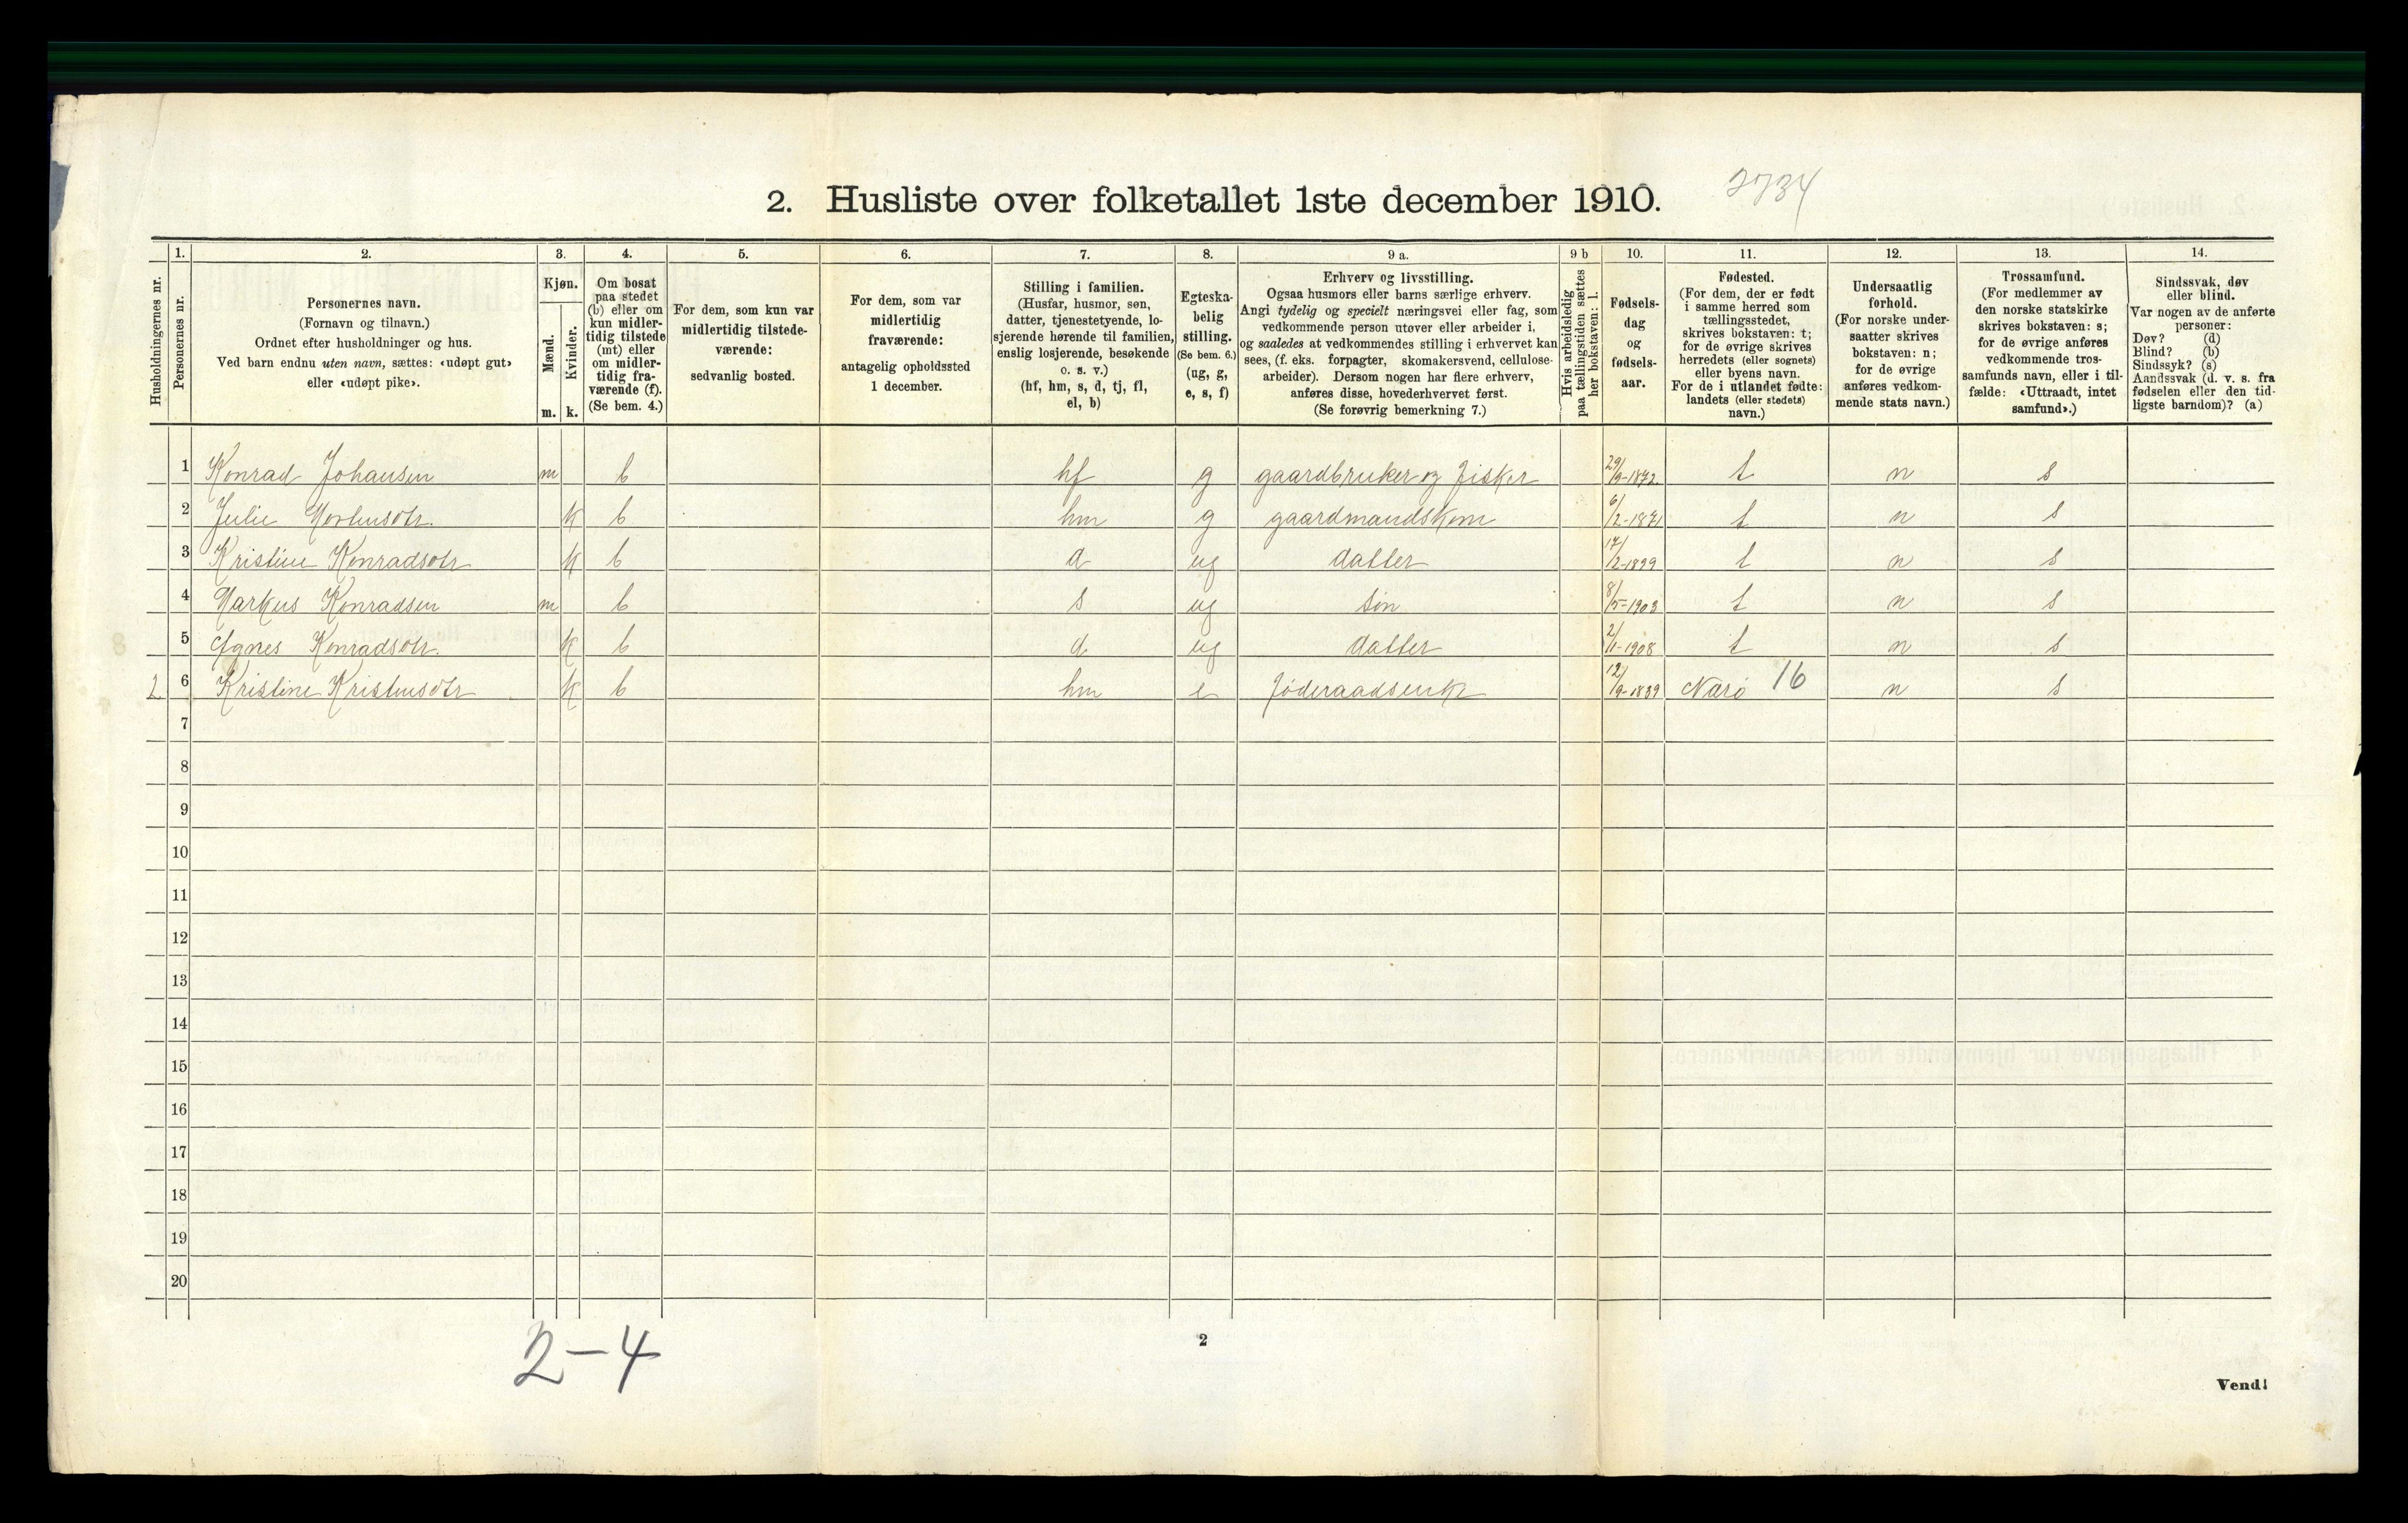 2. Husliste over folketallet 1ste december 1910.
2734
Husholdningernes nr.
1.
Personernes nr.
2.
Personernes navn.
(Fornavn og tilnavn.)
Ordnet efter husholdninger og hus.
Ved barn endnu uten navn, sættes: «udøpt gut»
eller «udøpt pike».
3.
Kjøn.
Mænd.
Kvinder.
m. k.
4.
Om bosat
paa stedet
(b) eller om
kun midler-
tidig tilstede
(mt) eller
om midler-
tidig fra-
værende (f).
(Se bem. 4.)
5.
For dem, som kun var
midlertidig tilstede-
værende:
sedvanlig bosted.
6.
For dem, som var
midlertidig
fraværende:
antagelig opholdssted
1 december.
7.
Stilling i familien.
(Husfar, husmor, søn,
datter, tjenestetyende, lo-
sjerende hørende til familien,
enslig losjerende, besøkende
o. s. v.)
(hf, hm, s, d, tj, fl,
el, b)
8.
Egteska-
belig
stilling.
(Se bem. 6.)
(ug, g,
e, s, f)
9 a.
Erhverv og livsstilling.
Ogsaa husmors eller barns særlige erhverv.
Angi tydelig og specielt næringsvei eller fag, som
vedkommende person utøver eller arbeider i,
og saaledes at vedkommendes stilling i erhvervet kan
sees, (f. eks. forpagter, skomakersvend, cellulose-
arbeider). Dersom nogen har flere erhverv,
anføres disse, hovederhvervet først.
(Se forøvrig bemerkning 7.)
9 b
Hvis arbeidsledig
paa tællingstiden sættes
her bokstaven: l.
10.
Fødsels-
dag
og
fødsels-
aar.
11.
Fødested.
(For dem, der er født
i samme herred som
tællingsstedet,
skrives bokstaven: t;
for de øvrige skrives
herredets (eller sognets)
eller byens navn.
For de i utlandet fødte:
landets (eller stedets)
navn.)
12.
Undersaatlig
forhold.
(For norske under-
saatter skrives
bokstaven: n;
for de øvrige
anføres vedkom-
mende stats navn.)
13.
Trossamfund.
(For medlemmer av
den norske statskirke
skrives bokstaven: s;
for de øvrige anføres
vedkommende tros-
samfunds navn, eller i til-
fælde: «Uttraadt, intet
samfund».)
14.
Sindssvak, døv
eller blind.
Var nogen av de anførte
personer:
Døv? (d)
Blind? (b)
Sindssyk? (s)
Aandssvak (d. v. s. fra
fødselen eller den tid-
ligste barndom)? (a)
1 Konrad Johansen m b hf g gaardbruker og fisker 29/9-1872 t n s
2 Julie k b hm g gaardmandskone 6/2-1871 t n s
3 Kristine Konradsdtr k b d ug datter 17/2-1899 t n s
4 Markus Konradsen m b s ug søn 8/5-1903 t n s
5 Agnes Konradsdtr. k b d ug datter 2/11-1908 t n s
2 6 Kristine Kristensdtr k b hm e føderaadsenke 12/9-1839 Nærø 16 n s
7
8
9
10
11
12
13
14
15
16
17
18
19
20
2-4
2
Vend!